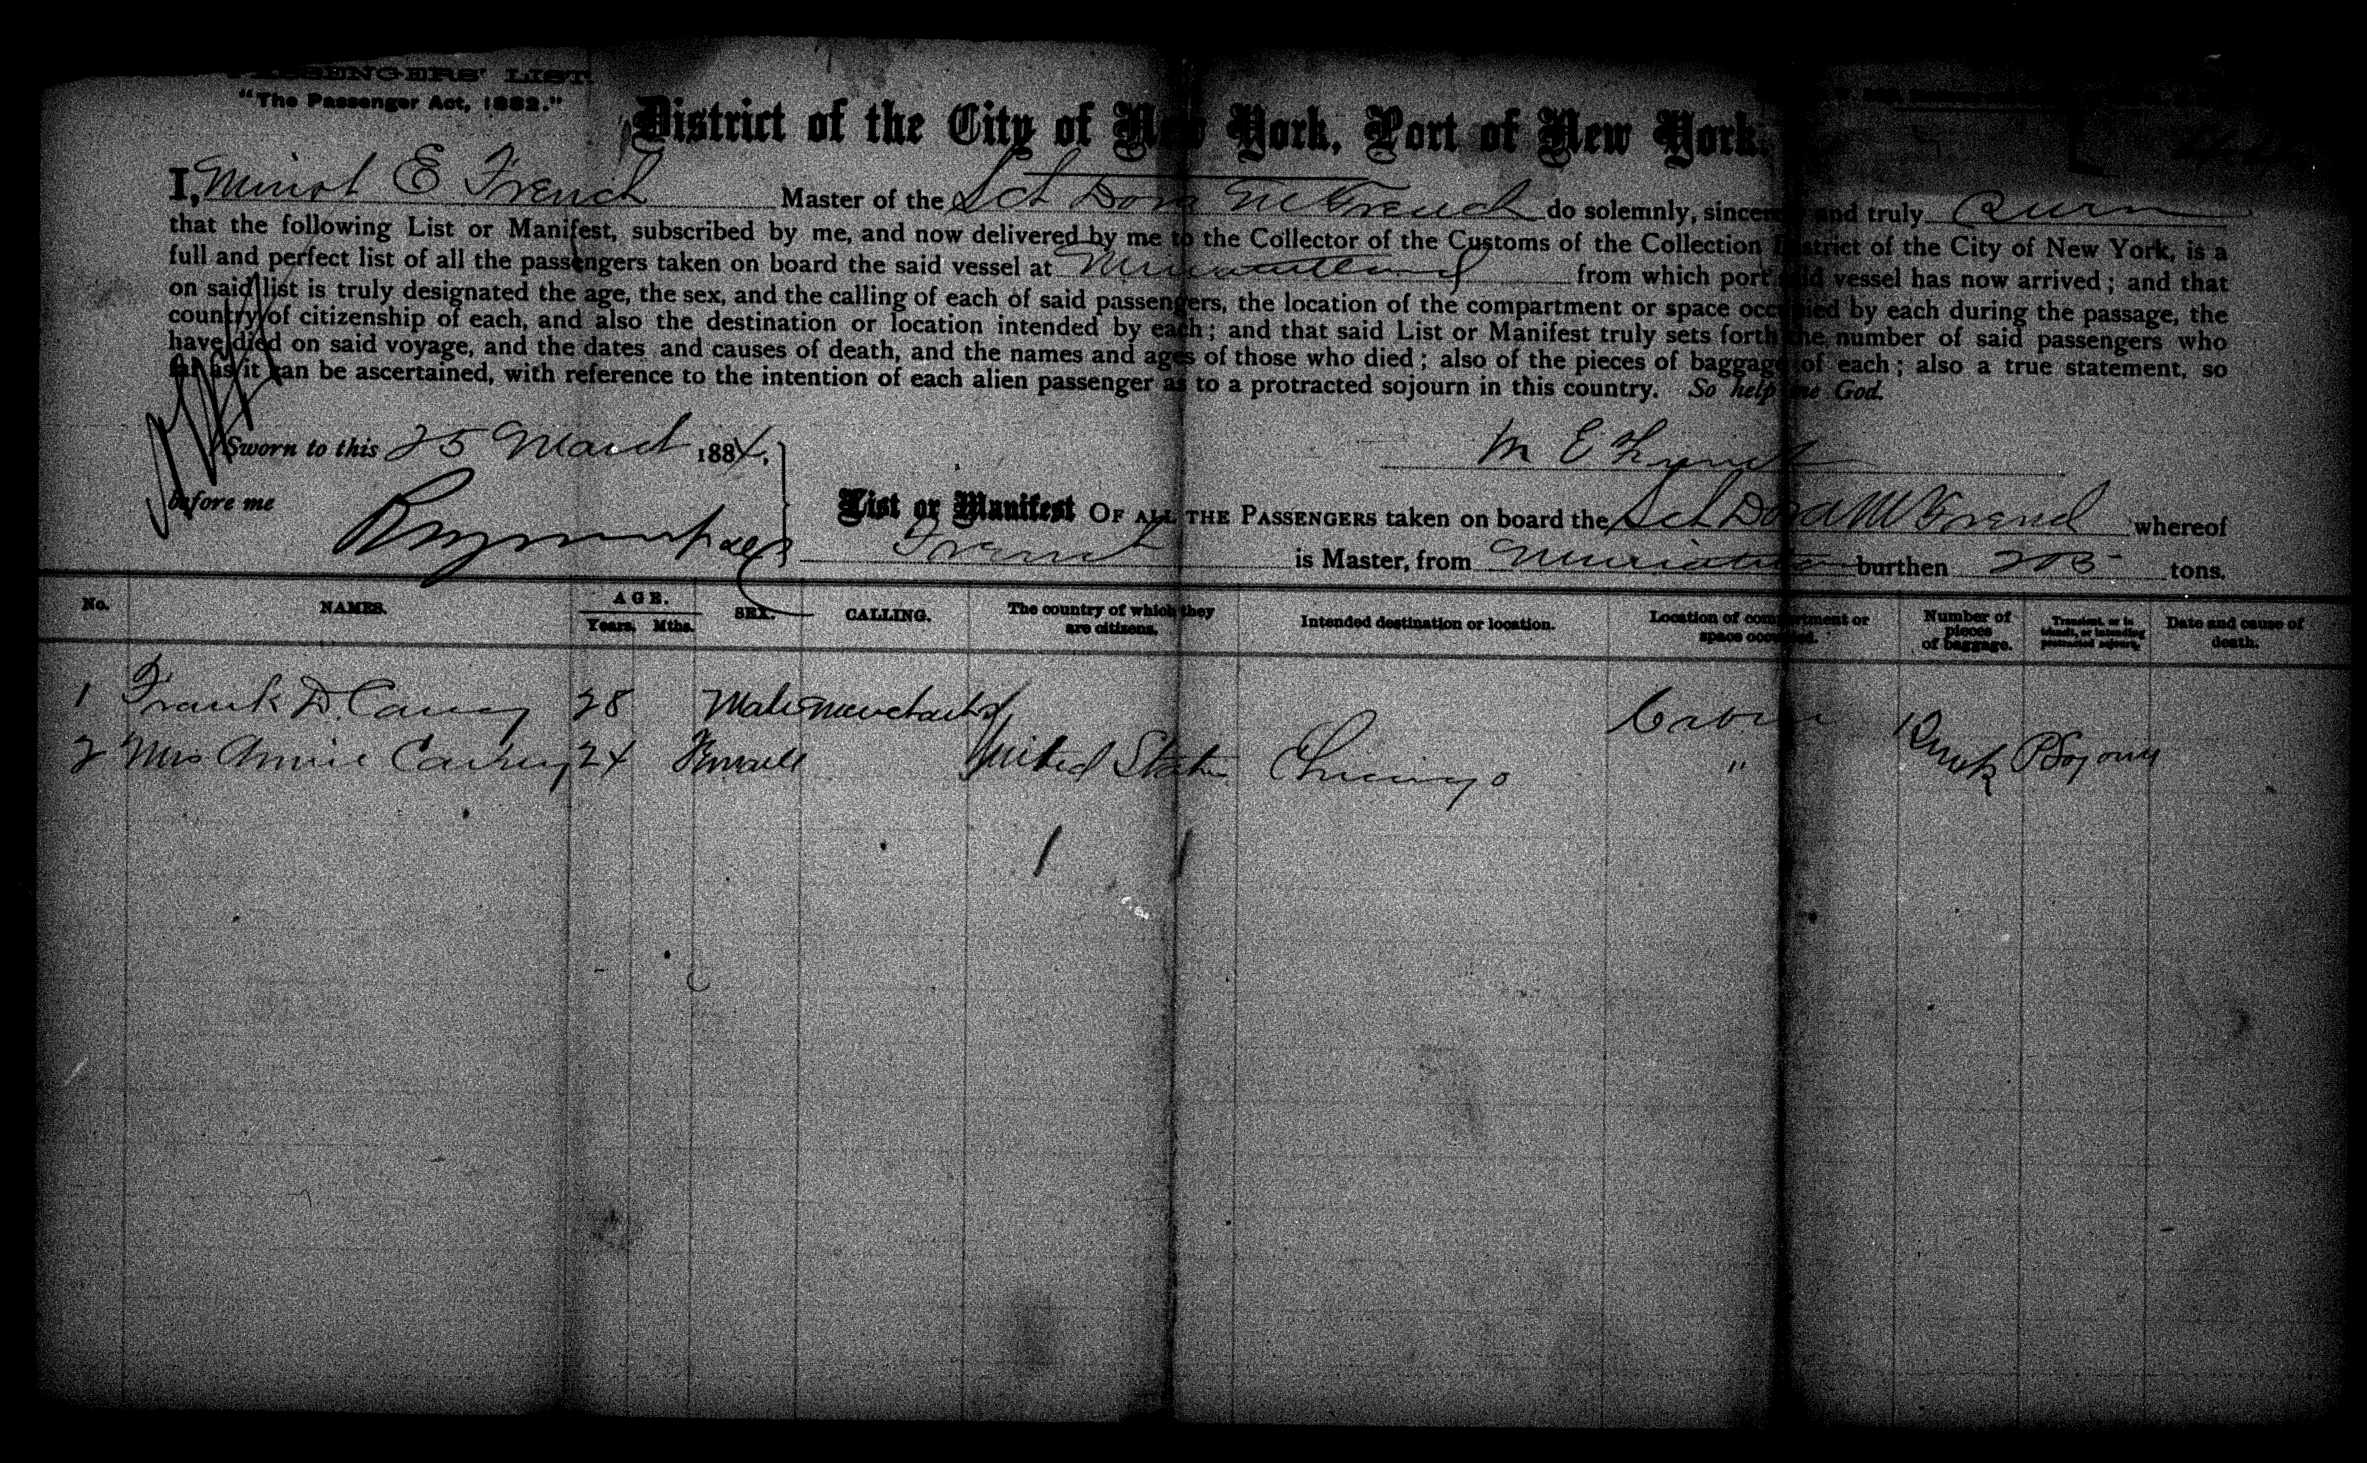 PASSENGERS' LIST.
"The Passenger Act, 1882."
District of the City of New York, Port of New York.
I, Minot E French Master of the Sch Dora M French do solemnly, sincerely and truly
that the following List or Manifest, subscribed by me, and now delivered by me to the Collector of the Customs of the Collection District of the City of New York, is a
full and perfect list of all the passengers taken on board the said vessel at from which port said vessel has now arrived; and that
on said list is truly designated the age, the sex, and the calling of each of said passengers, the location of the compartment or space occupied by each during the passage, the
country of citizenship of each, and also the destination or location intended by each; and that said List or Manifest truly sets forth the number of said passengers who
have died on said voyage, and the dates and causes of death, and the names and ages of those who died; also of the pieces of baggage of each; also a true statement, so
far as it can be ascertained, with reference to the intention of each alien passenger as to a protracted sojourn in this country. So help me God.
Sworn to this 25 March 1884.
M E French
before me
List or Manifest OF ALL THE PASSENGERS taken on board the Sch Dora M French whereof
French is Master, from burthen tons.
No. NAMES. AGE. Years. Mths. SEX. CALLING. The country of which they are citizens. Intended destination or location. Location of compartment or space occupied. Number of pieces of baggage. Transient, or in transit, or intending protracted sojourn. Date and cause of death.
1 Frank D. 28 Male Merchant Cabin
2 Mrs Annie 24 Female United States Chicago " P Sojourn
1 1